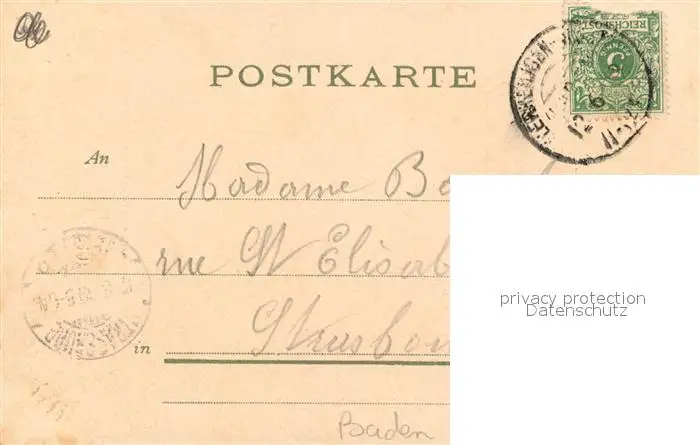 REICHSPOST
5
POSTKARTE
An
Madame
rue St Elisab
in
Strasbou
Baden
privacy protection
Datenschutz